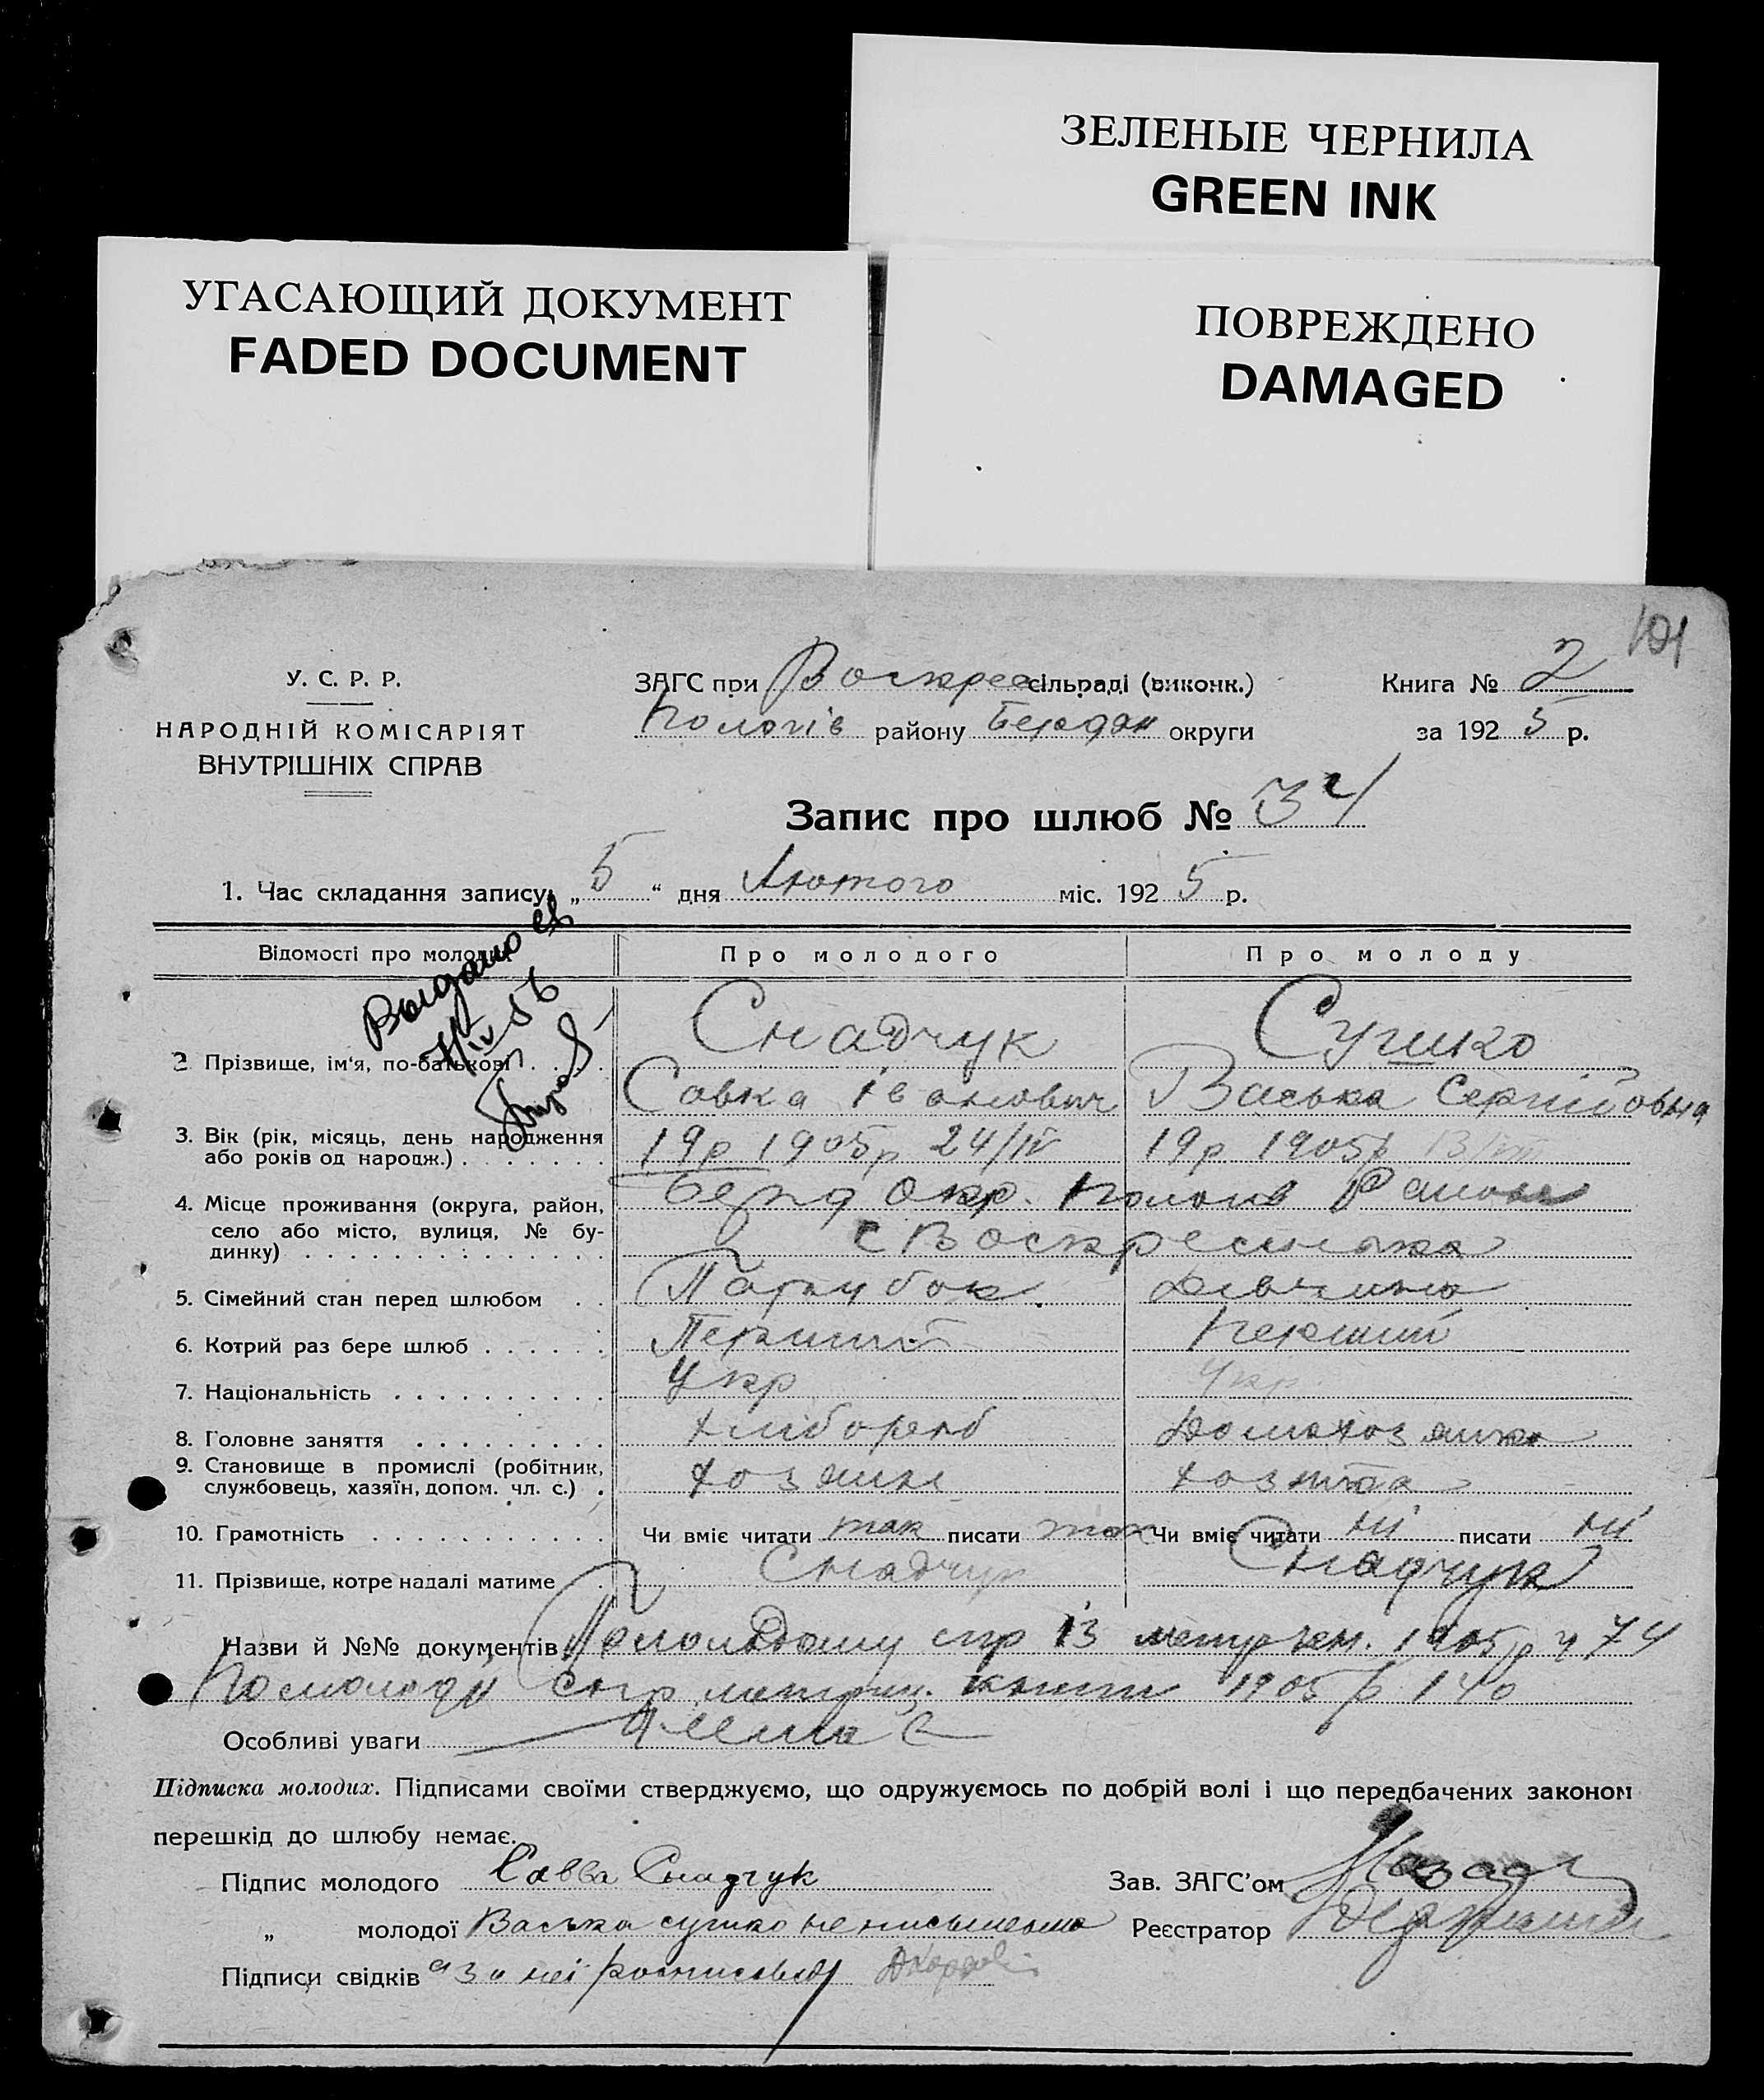 ЗЕЛЕНЫЕ ЧЕРНИЛА
GREEN INK
УГАСАЮЩИЙ ДОКУМЕНТ
FADED DOCUMENT
ПОВРЕЖДЕНО
DAMAGED
101
У. С. Р. Р.
НАРОДНІЙ КОМІСАРІЯТ
ВНУТРІШНІХ СПРАВ
ЗАГС при Воскрес сільраді (виконк.)
Пологів району Бердян округи
Книга № 2
за 1925 р.
Запис про шлюб № 34
1. Час складання запису „5“ дня Лютого міс. 1925 р.
Відомості про молодих
Про молодого
Про молоду
Выдано св
7/IV-56
2 Прізвище, ім‘я, по-батькові
Снадчук
Савка Іванович
Сушко
Васька Сергійовна
3. Вік (рік, місяць, день народження
або років од народж.)
19р 1905р 24/IV
19р 1905р 13/VIII
4. Місце проживання (округа, район,
село або місто, вулиця, № бу-
динку)
Берд Окр. Пологів Района
с Воскресенька
5. Сімейний стан перед шлюбом
Парубок
Дівчина
6. Котрий раз бере шлюб
Перший
Перший
7. Національність
Укр
Укр.
8. Головне заняття
Хлібороб
Домохозяйка
9. Становище в промислі (робітник,
службовець, хазяїн, допом. чл. с.)
хозяин
10. Грамотність
Чи вміє читати так писати так
Чи вміє читати ні писати ні
11. Прізвище, котре надалі матиме
Снадчук
Снадчук
Назви й №№ документів По молодому спр із метр кн. 1905 р ч 74
По молодій спр. метрич. книги 1905 р 140
Особливі уваги Немає
Підписка молодих. Підписами своїми стверджуємо, що одружуємось по добрій волі і що передбачених законом
перешкід до шлюбу немає.
Підпис молодого Савва Снадчук
Зав. ЗАГС'ом
„ молодої Васька сушко неписьменна
Реєстратор
Підписи свідків а за неї росписався